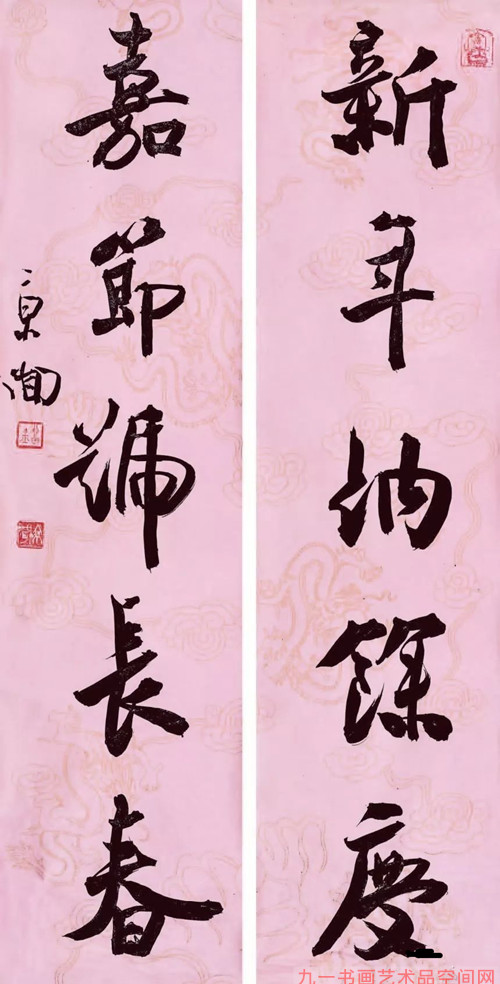 新年納餘慶
嘉節號長春
九一书画艺术品空间网